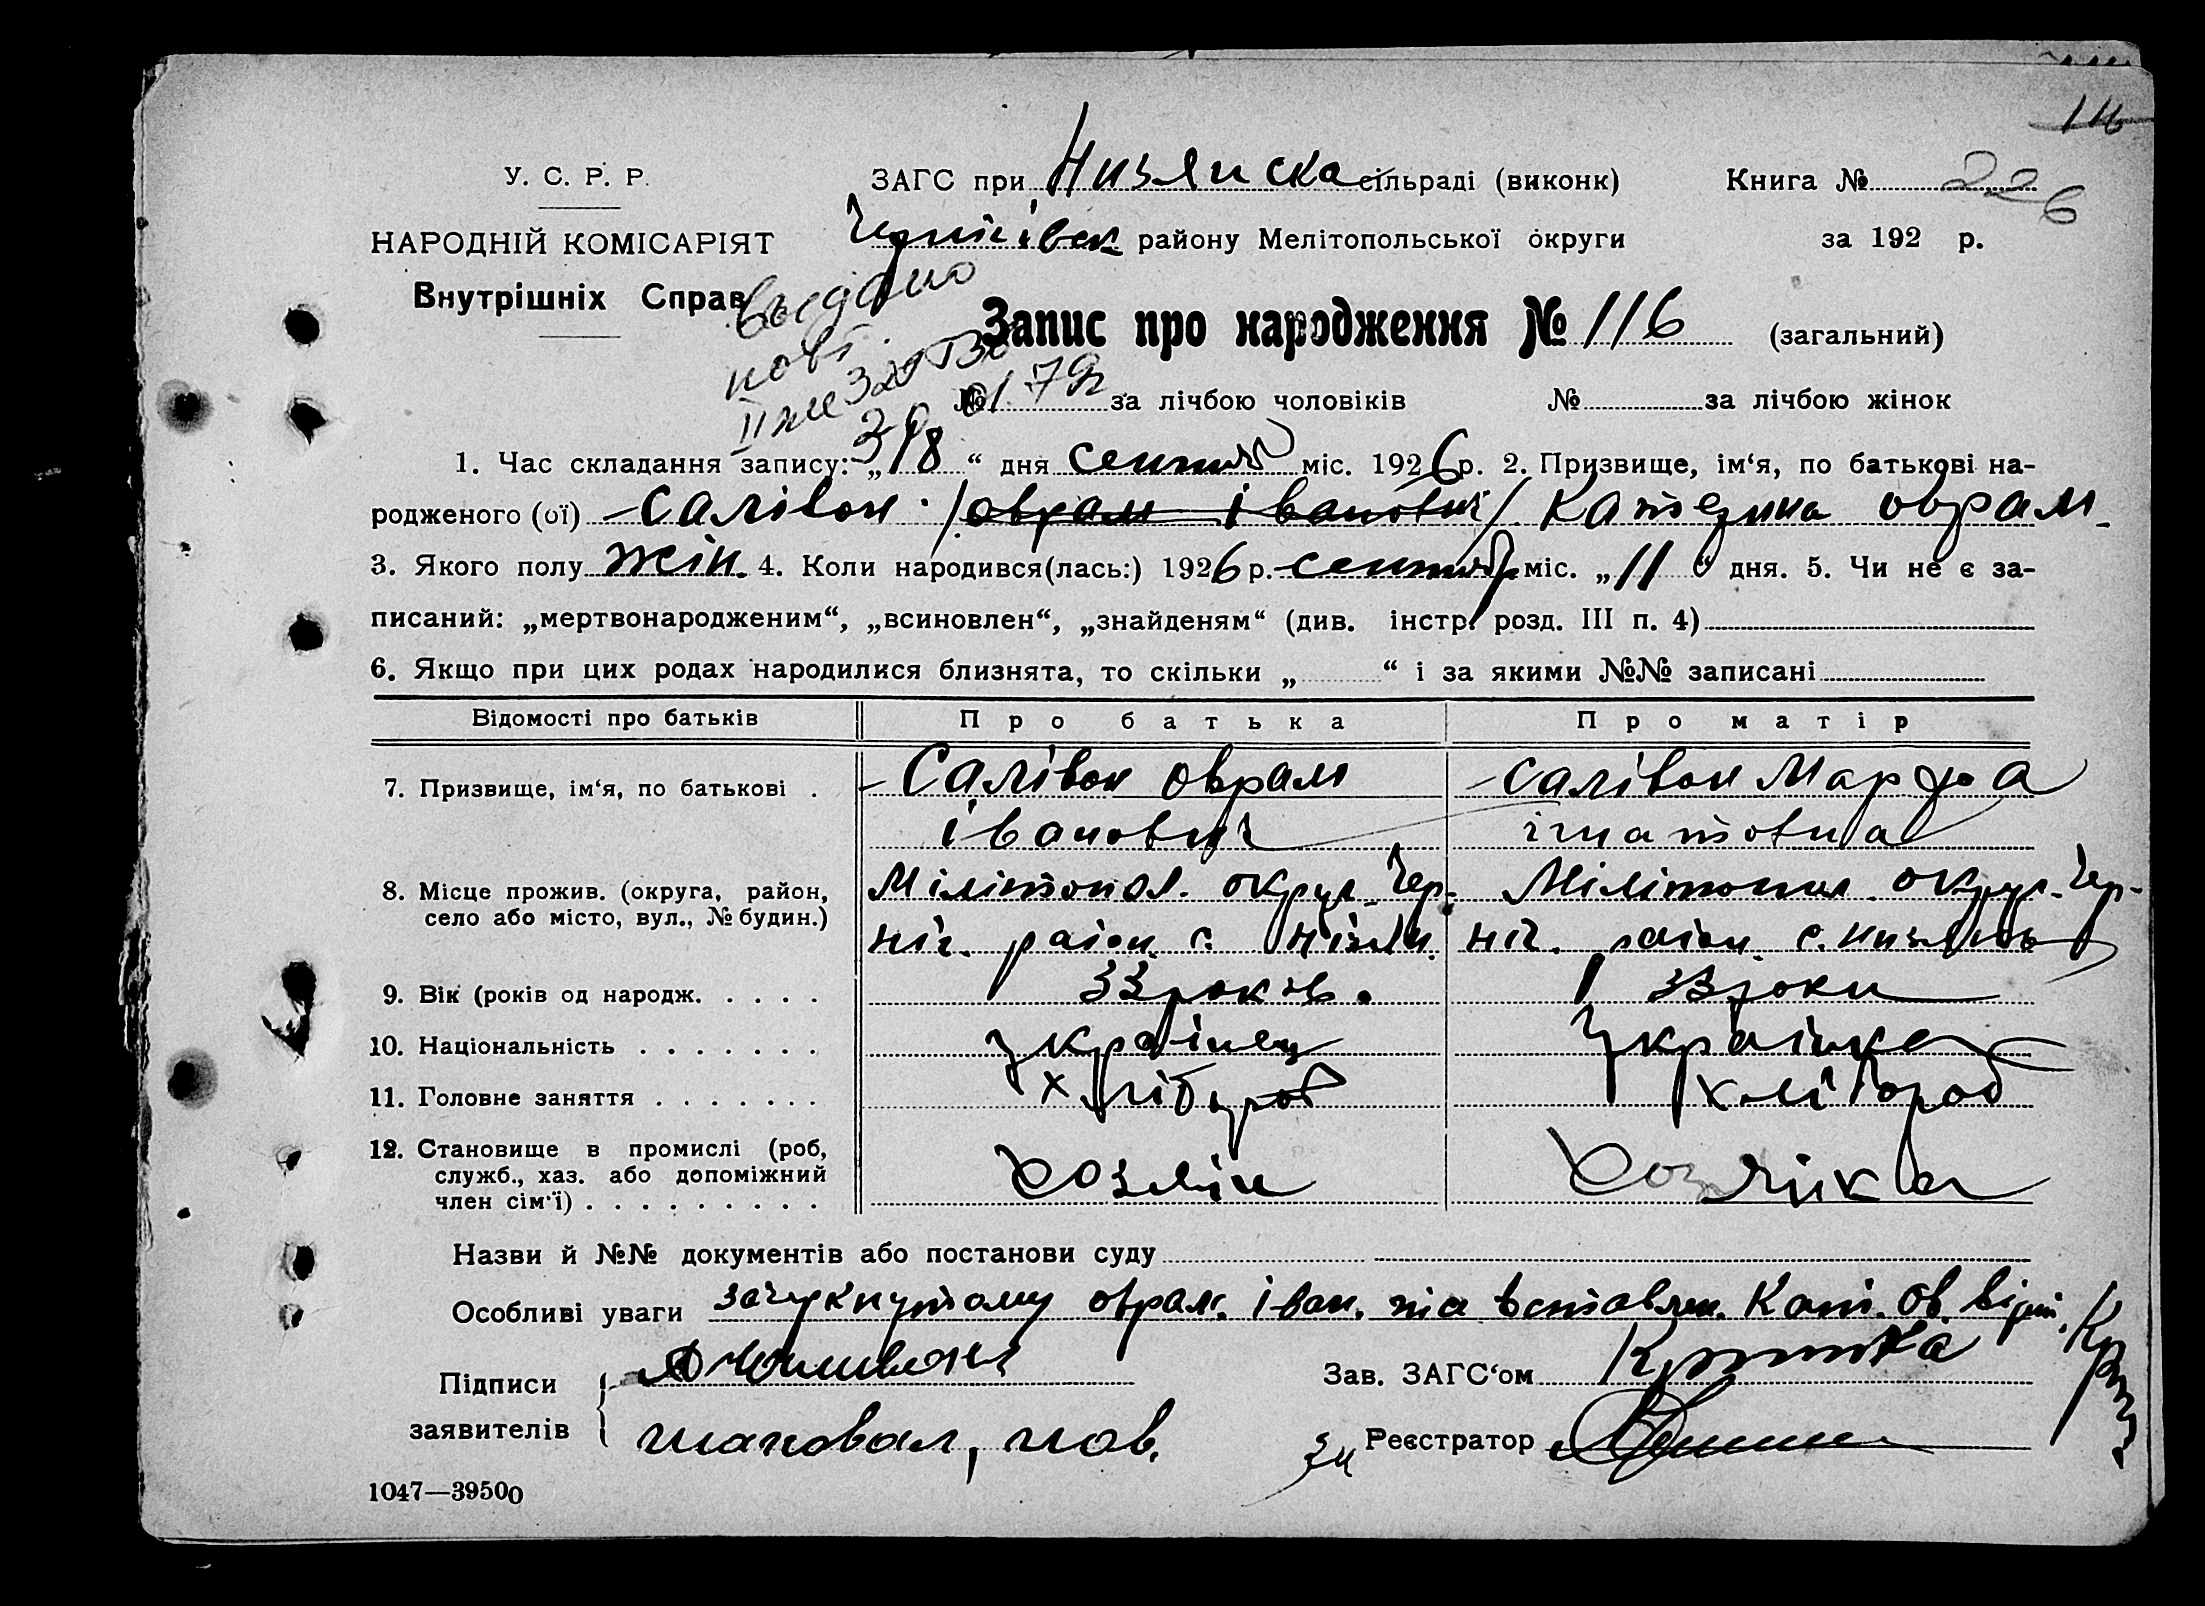 116
У. С. Р. Р. ЗАГС при Низянска сільраді (виконк) Книга № 226
НАРОДНІЙ КОМІСАРІЯТ Чернігівск району Мелітопольської округи за 192 р.
Внутрішніх Справ
Запис про народження № 116 (загальний)
№ за лічбою чоловіків № за лічбою жінок
1. Час складання запису: „18“ дня сентяб міс. 1926 р. 2. Призвище, ім‘я, по батькові на-
родженого (ої) Салівон /оврам іванович/ Катерина оврам.
3. Якого полу жін. 4. Коли народився(лась:) 1926 р. сентябр міс. „11“ дня. 5. Чи не є за-
писаний: „мертвонародженим“, „всиновлен“, „знайденям“ (див. інстр. розд. III п. 4)
6. Якщо при цих родах народилися близнята, то скільки „ “ і за якими №№ записані
Відомості про батьків Про батька Про матір
7. Призвище, ім‘я, по батькові . Салівон оврам Салівон Марфа
івановия ігнатовна
8. Місце прожив. (округа, район, Мілітопол. округ. Чер- Мілітопол. округ. Чер-
село або місто, вул., № будин.) ніг. раіон с. Нізян. ніг. раіон с. низянь
9. Вік (років од народж. . . . . 33 років. 33 роки
10. Національність . . . . . . . українец українка
11. Головне заняття . . . . . . . хлібороб хлібороб
12. Становище в промислі (роб,
служб., хаз. або допоміжний хозяін хозяіка
член сім‘ї) . . . . . . . . .
Назви й №№ документів або постанови суду
Особливі уваги зачукнутому оврам. іван. та вставлен. Кат. ов. вірт.
Підписи Зав. ЗАГС‘ом
заявителів Шаповал, пов. Реєстратор
1047—39500